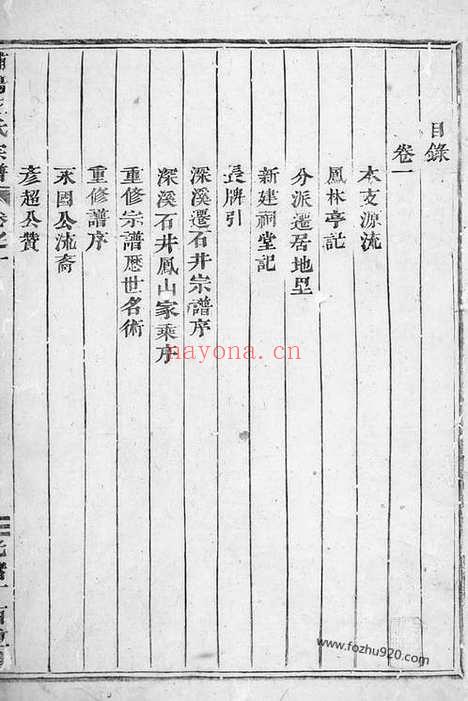 目錄
卷一
本支源流
鳳林亭記
分派遷居地里
新建祠堂記
長牌引
深溪遷石井宗譜序
深溪石井鳳山家乘序
重修宗譜歷世名術
重修譜序
永國公流裔
彥超公贊
氏宗譜 卷之一
nayona.cn
www.fozhu920.com